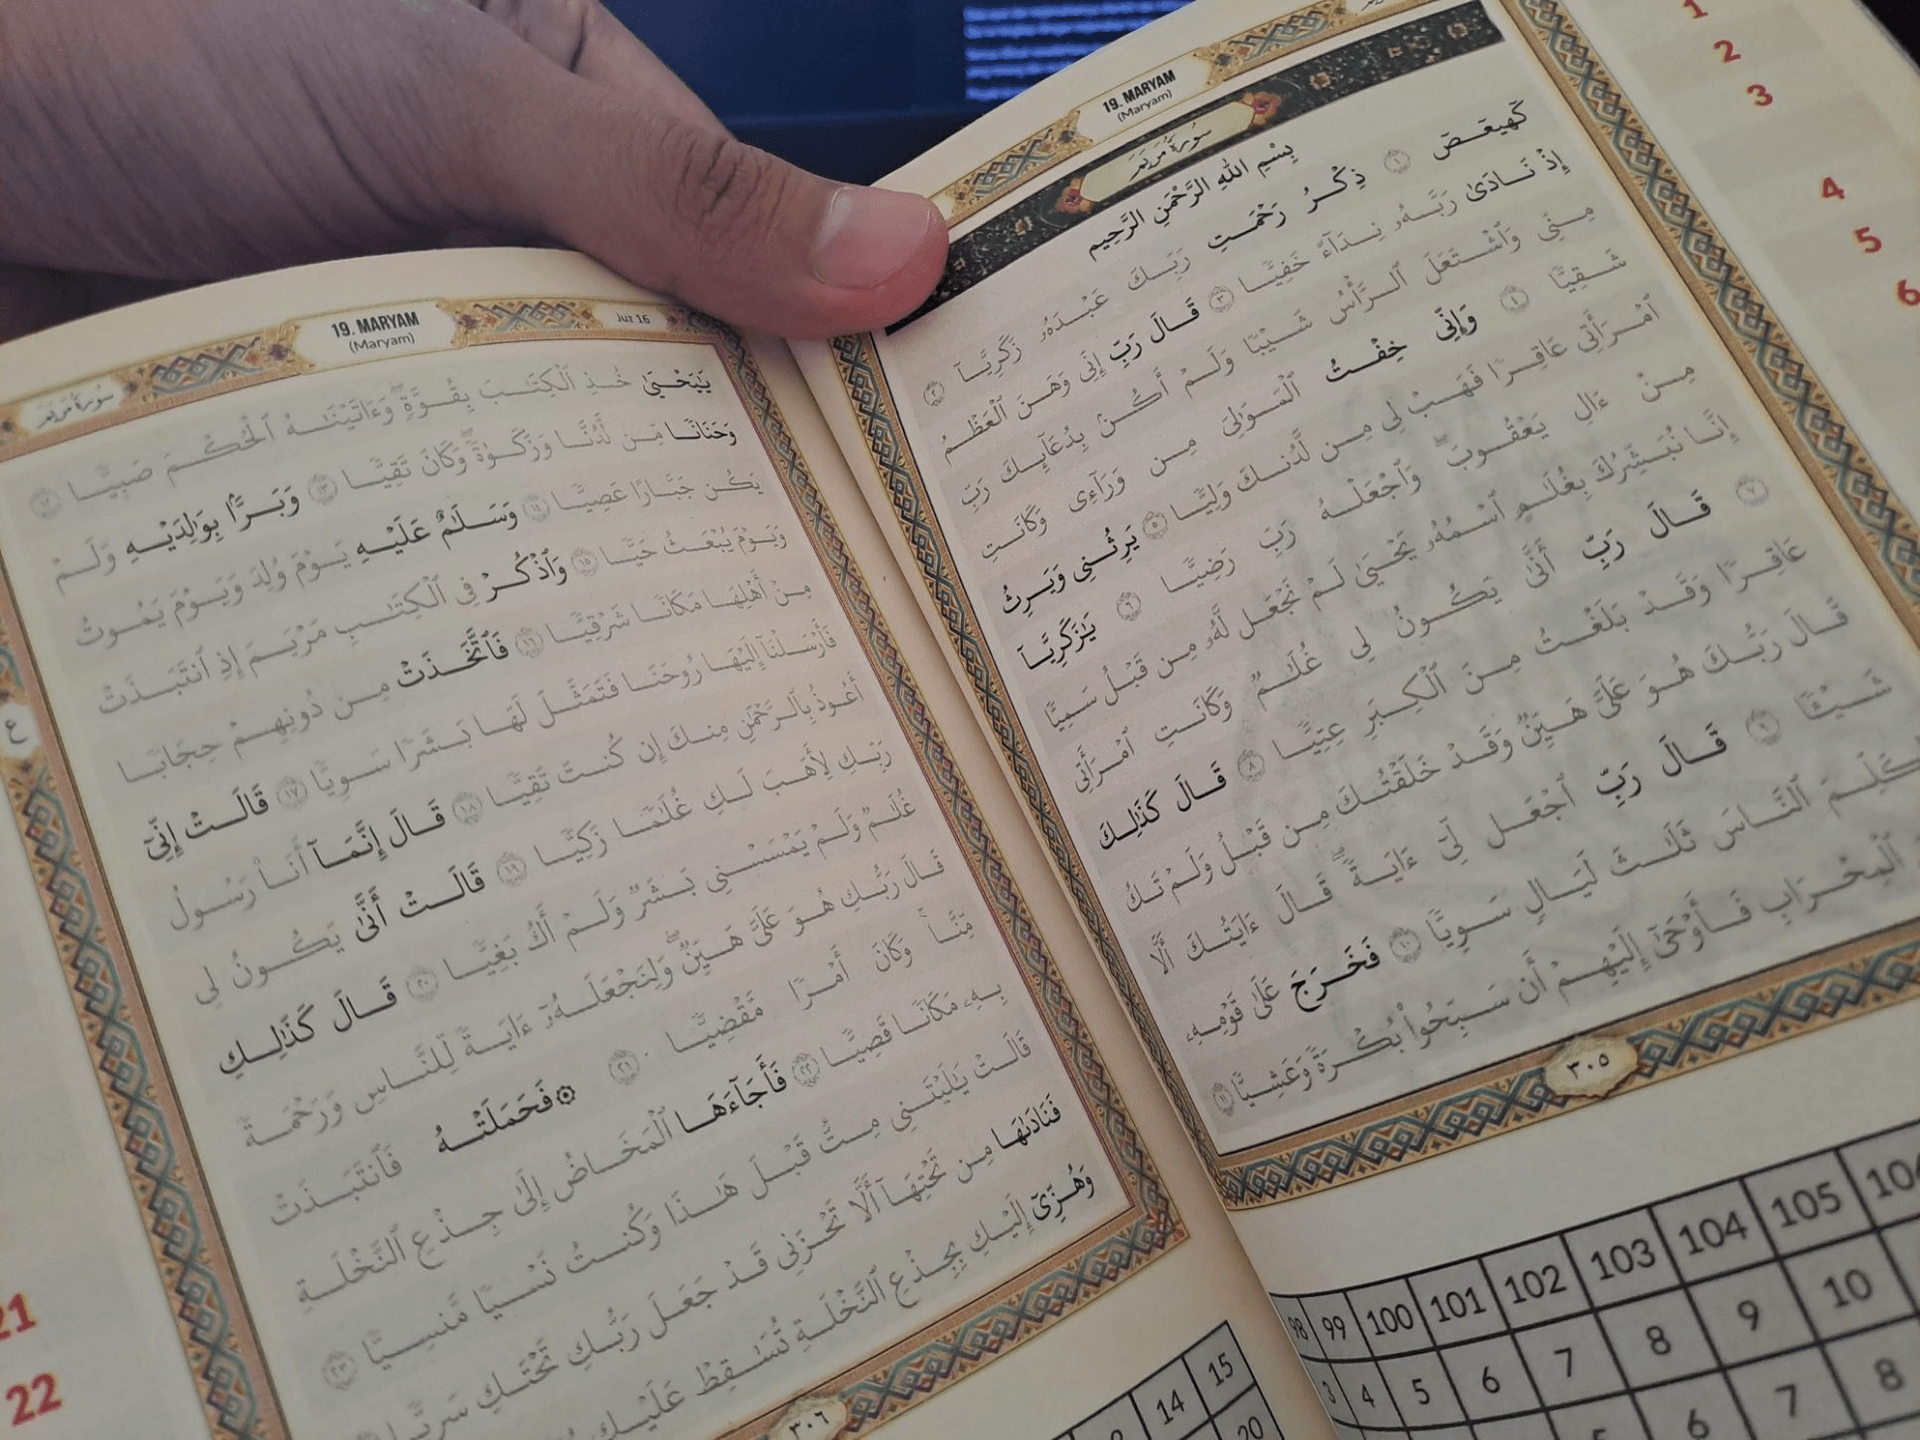 19. MARYAM
(Maryam)
سُورَةُ مَرْيَمَ
بِسْمِ اللَّهِ الرَّحْمَنِ الرَّحِيمِ
كٓهيعٓصٓ ١ ذِكْرُ رَحْمَتِ رَبِّكَ عَبْدَهُۥ زَكَرِيَّآ ٢
إِذْ نَادَىٰ رَبَّهُۥ نِدَآءً خَفِيًّا ٣ قَالَ رَبِّ إِنِّى وَهَنَ ٱلْعَظْمُ
مِنِّى وَٱشْتَعَلَ ٱلرَّأْسُ شَيْبًا وَلَمْ أَكُنۢ بِدُعَآئِكَ رَبِّ
شَقِيًّا ٤ وَإِنِّى خِفْتُ ٱلْمَوَٰلِىَ مِن وَرَآءِى وَكَانَتِ
ٱمْرَأَتِى عَاقِرًا فَهَبْ لِى مِن لَّدُنكَ وَلِيًّا ٥ يَرِثُنِى وَيَرِثُ
مِنْ ءَالِ يَعْقُوبَ ۖ وَٱجْعَلْهُ رَبِّ رَضِيًّا ٦ يَـٰزَكَرِيَّآ
إِنَّا نُبَشِّرُكَ بِغُلَـٰمٍ ٱسْمُهُۥ يَحْيَىٰ لَمْ نَجْعَل لَّهُۥ مِن قَبْلُ سَمِيًّا
٧ قَالَ رَبِّ أَنَّىٰ يَكُونُ لِى غُلَـٰمٌ وَكَانَتِ ٱمْرَأَتِى
عَاقِرًا وَقَدْ بَلَغْتُ مِنَ ٱلْكِبَرِ عِتِيًّا ٨ قَالَ كَذَٰلِكَ
قَالَ رَبُّكَ هُوَ عَلَىَّ هَيِّنٌ وَقَدْ خَلَقْتُكَ مِن قَبْلُ وَلَمْ تَكُ
شَيْـًٔا ٩ قَالَ رَبِّ ٱجْعَل لِّىٓ ءَايَةً ۚ قَالَ ءَايَتُكَ أَلَّا
تُكَلِّمَ ٱلنَّاسَ ثَلَـٰثَ لَيَالٍ سَوِيًّا ١٠ فَخَرَجَ عَلَىٰ قَوْمِهِۦ
ٱلْمِحْرَابِ فَأَوْحَىٰٓ إِلَيْهِمْ أَن سَبِّحُوا۟ بُكْرَةً وَعَشِيًّا ١١
٣٠٥
1
2
3
4
5
6
98 99 100 101 102 103 104 105 106
3 4 5 6 7 8 9 10
6 7 8
19. MARYAM
(Maryam)
Juz 16
سُورَةُ مَرْيَمَ
يَـٰيَحْيَىٰ خُذِ ٱلْكِتَـٰبَ بِقُوَّةٍ ۖ وَءَاتَيْنَـٰهُ ٱلْحُكْمَ صَبِيًّا ١٢
وَحَنَانًا مِّن لَّدُنَّا وَزَكَوٰةً ۖ وَكَانَ تَقِيًّا ١٣ وَبَرًّۢا بِوَٰلِدَيْهِ وَلَمْ
يَكُن جَبَّارًا عَصِيًّا ١٤ وَسَلَـٰمٌ عَلَيْهِ يَوْمَ وُلِدَ وَيَوْمَ يَمُوتُ
وَيَوْمَ يُبْعَثُ حَيًّا ١٥ وَٱذْكُرْ فِى ٱلْكِتَـٰبِ مَرْيَمَ إِذِ ٱنتَبَذَتْ
مِنْ أَهْلِهَا مَكَانًا شَرْقِيًّا ١٦ فَٱتَّخَذَتْ مِن دُونِهِمْ حِجَابًا
فَأَرْسَلْنَآ إِلَيْهَا رُوحَنَا فَتَمَثَّلَ لَهَا بَشَرًا سَوِيًّا ١٧ قَالَتْ إِنِّىٓ
أَعُوذُ بِٱلرَّحْمَـٰنِ مِنكَ إِن كُنتَ تَقِيًّا ١٨ قَالَ إِنَّمَآ أَنَا۠ رَسُولُ
رَبِّكِ لِأَهَبَ لَكِ غُلَـٰمًا زَكِيًّا ١٩ قَالَتْ أَنَّىٰ يَكُونُ لِى
غُلَـٰمٌ وَلَمْ يَمْسَسْنِى بَشَرٌ وَلَمْ أَكُ بَغِيًّا ٢٠ قَالَ كَذَٰلِكِ
قَالَ رَبُّكِ هُوَ عَلَىَّ هَيِّنٌ ۖ وَلِنَجْعَلَهُۥٓ ءَايَةً لِّلنَّاسِ وَرَحْمَةً
مِّنَّا ۚ وَكَانَ أَمْرًا مَّقْضِيًّا ٢١ ۞ فَحَمَلَتْهُ فَٱنتَبَذَتْ
بِهِۦ مَكَانًا قَصِيًّا ٢٢ فَأَجَآءَهَا ٱلْمَخَاضُ إِلَىٰ جِذْعِ ٱلنَّخْلَةِ
قَالَتْ يَـٰلَيْتَنِى مِتُّ قَبْلَ هَـٰذَا وَكُنتُ نَسْيًا مَّنسِيًّا ٢٣
فَنَادَىٰهَا مِن تَحْتِهَآ أَلَّا تَحْزَنِى قَدْ جَعَلَ رَبُّكِ تَحْتَكِ سَرِيًّا
وَهُزِّىٓ إِلَيْكِ بِجِذْعِ ٱلنَّخْلَةِ تُسَـٰقِطْ عَلَيْكِ
٣٠٦
ع
21
22
14 15
20